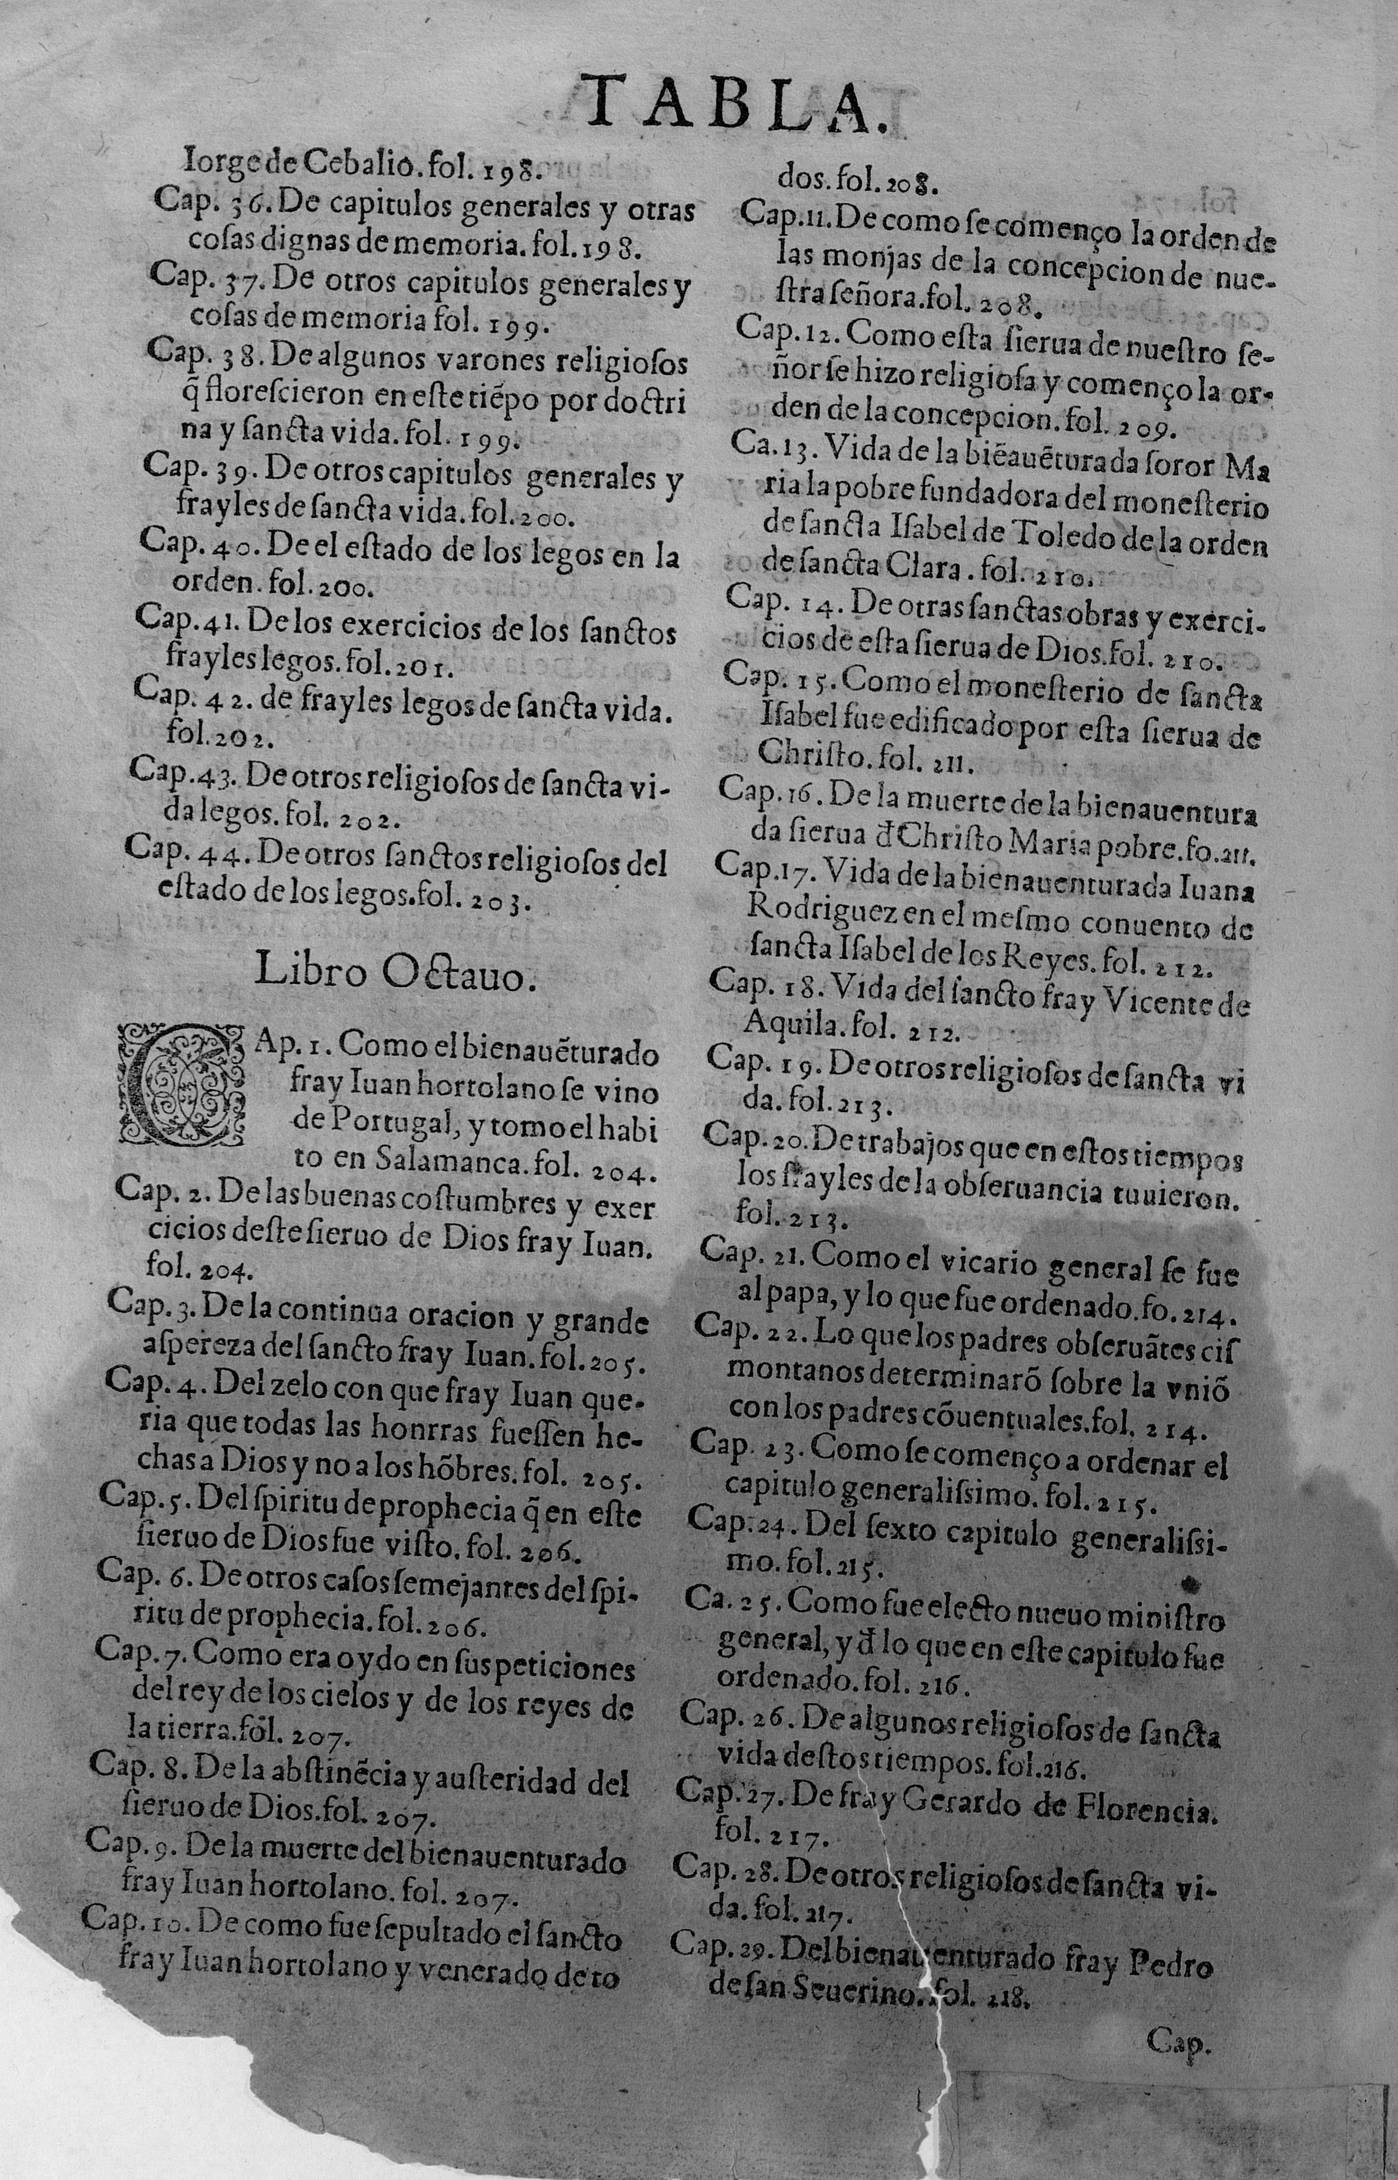 TABLA.
Iorge de Cebalio. fol. 198.
Cap. 36. De capitulos generales y otras
cosas dignas de memoria. fol. 198.
Cap. 37. De otros capitulos generales y
cosas de memoria fol. 199.
Cap. 38. De algunos varones religiosos
q̃ florescieron en este tiẽpo por doctri
na y sancta vida. fol. 199.
Cap. 39. De otros capitulos generales y
frayles de sancta vida. fol. 200.
Cap. 40. De el estado de los legos en la
orden. fol. 200.
Cap. 41. De los exercicios de los sanctos
frayles legos. fol. 201.
Cap. 42. de frayles legos de sancta vida.
fol. 202.
Cap. 43. De otros religiosos de sancta vi-
da legos. fol. 202.
Cap. 44. De otros sanctos religiosos del
estado de los legos. fol. 203.
Libro Octauo.
CAp. 1. Como el bienauẽturado
fray Iuan hortolano se vino
de Portugal, y tomo el habi
to en Salamanca. fol. 204.
Cap. 2. De las buenas costumbres y exer
cicios deste sieruo de Dios fray Iuan.
fol. 204.
Cap. 3. De la continua oracion y grande
aspereza del sancto fray Iuan. fol. 205.
Cap. 4. Del zelo con que fray Iuan que-
ria que todas las honrras fuessen he-
chas a Dios y no a los hõbres. fol. 205.
Cap. 5. Del spiritu de prophecia q̃ en este
sieruo de Dios fue visto. fol. 206.
Cap. 6. De otros casos semejantes del spi-
ritu de prophecia. fol. 206.
Cap. 7. Como era oydo en sus peticiones
del rey de los cielos y de los reyes de
la tierra. fol. 207.
Cap. 8. De la abstinẽcia y austeridad del
sieruo de Dios. fol. 207.
Cap. 9. De la muerte del bienauenturado
fray Iuan hortolano. fol. 207.
Cap. 10. De como fue sepultado el sancto
fray Iuan hortolano y venerado de to
dos. fol. 208.
Cap. 11. De como se començo la orden de
las monjas de la concepcion de nue-
stra señora. fol. 208.
Cap. 12. Como esta sierua de nuestro se-
ñor se hizo religiosa y començo la or-
den de la concepcion. fol. 209.
Ca. 13. Vida de la biẽauẽturada soror Ma
ria la pobre fundadora del monesterio
de sancta Isabel de Toledo de la orden
de sancta Clara. fol. 210.
Cap. 14. De otras sanctas obras y exerci-
cios de esta sierua de Dios. fol. 210.
Cap. 15. Como el monesterio de sancta
Isabel fue edificado por esta sierua de
Christo. fol. 211.
Cap. 16. De la muerte de la bienauentura
da sierua đ Christo Maria pobre. fo. 211.
Cap. 17. Vida de la bienauenturada Iuana
Rodriguez en el mesmo conuento de
sancta Isabel de los Reyes. fol. 212.
Cap. 18. Vida del sancto fray Vicente de
Aquila. fol. 212.
Cap. 19. De otros religiosos de sancta vi
da. fol. 213.
Cap. 20. De trabajos que en estos tiempos
los frayles de la obseruancia tuuieron.
fol. 213.
Cap. 21. Como el vicario general se fue
al papa, y lo que fue ordenado. fo. 214.
Cap. 22. Lo que los padres obseruãtes cis
montanos determinarõ sobre la vniõ
con los padres cõuentuales. fol. 214.
Cap. 23. Como se començo a ordenar el
capitulo generalissimo. fol. 215.
Cap. 24. Del sexto capitulo generalissi-
mo. fol. 215.
Ca. 25. Como fue electo nueuo ministro
general, y đ lo que en este capitulo fue
ordenado. fol. 216.
Cap. 26. De algunos religiosos de sancta
vida destos tiempos. fol. 216.
Cap. 27. De fray Gerardo de Florencia.
fol. 217.
Cap. 28. De otros religiosos de sancta vi-
da. fol. 217.
Cap. 29. Del bienauenturado fray Pedro
de san Seuerino. fol. 218.
Cap.